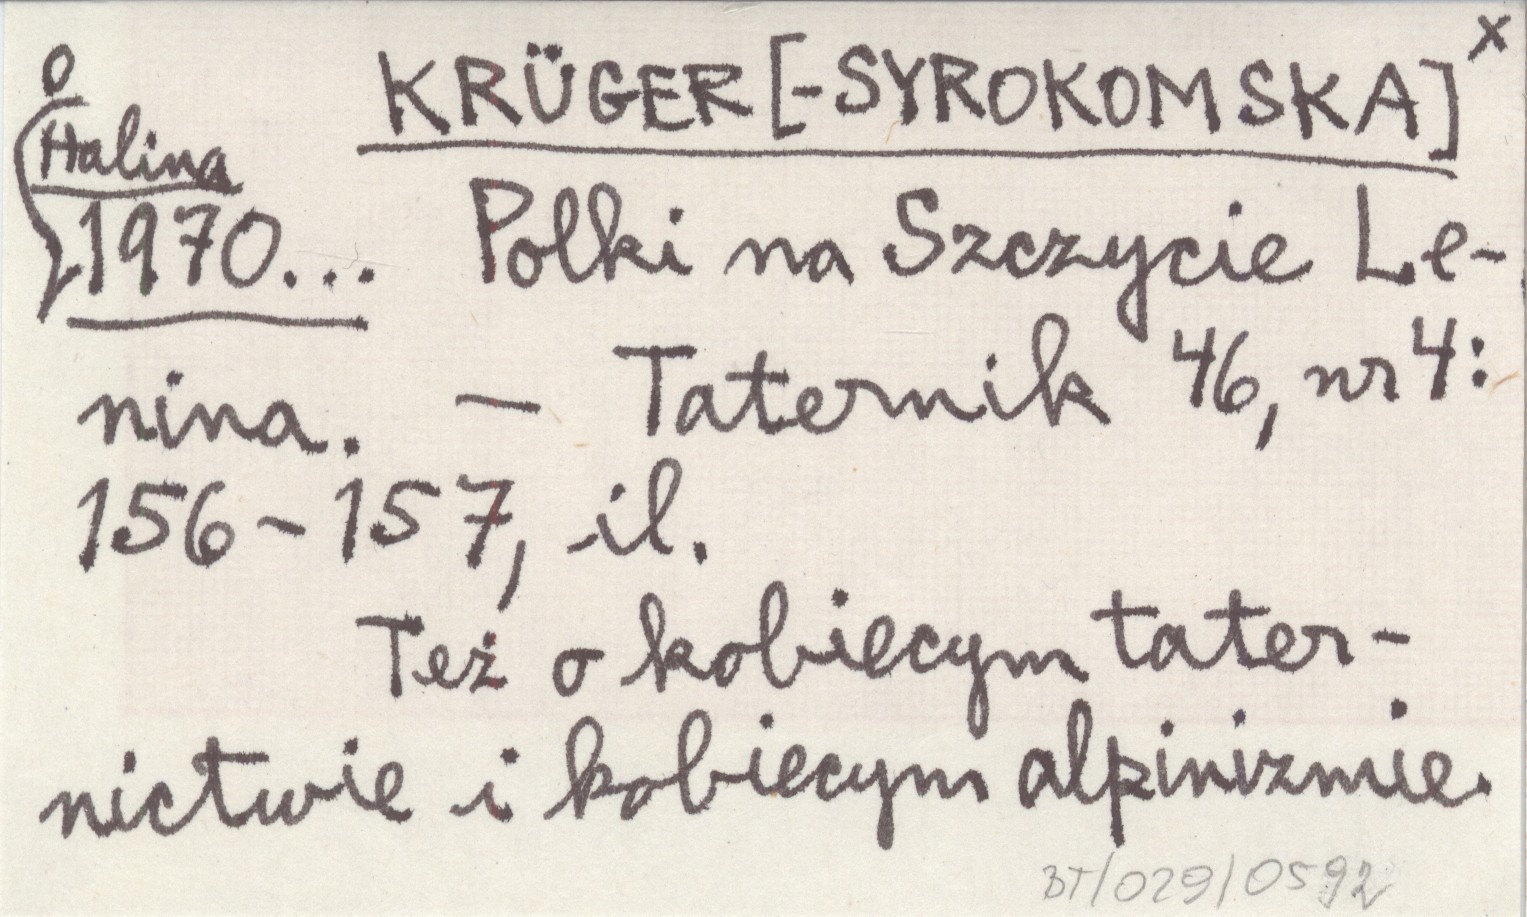 KRÜGER [-SYROKOMSKA] x
Halina
1970... Polki na Szczycie Le-
nina. — Taternik 46, nr 4:
156-157, il.
Też o kobiecym tater-
nictwie i kobiecym alpinizmie.
BT/029/0592